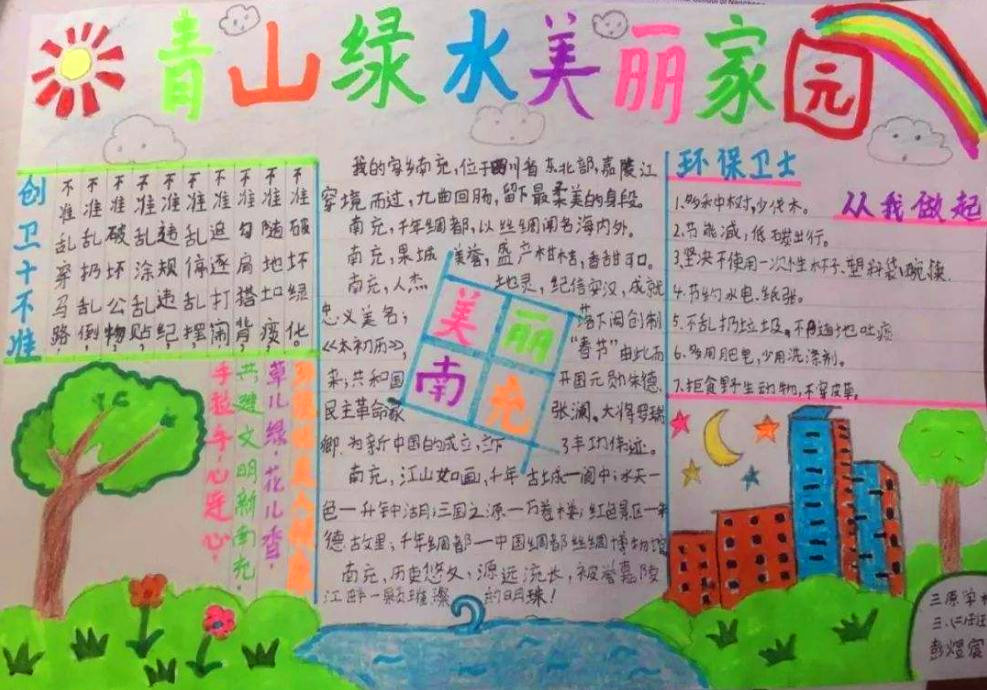 青山绿水美丽家园
创卫十不准
不准乱穿马路,
不准乱扔乱倒,
不准破坏公物,
不准乱涂乱贴,
不准违规违纪,
不准乱停乱摆,
不准追逐打闹,
不准勾肩搭背,
不准随地吐痰,
不准破坏绿化。
草儿绿,花儿香,
共建文明新南充,
手拉手心连心,
我的家乡南充,位于四川省东北部,嘉陵江
穿境而过,九曲回肠,留下最柔美的身段。
南充,千年绸都,以丝绸闻名海内外。
南充,果城美誉,盛产柑桔,香甜可口。
南充,人杰地灵,纪信安汉,成就
忠义美名;落下闳创制
《太初历》,“春节”由此而
来;共和国开国元勋朱德、
民主革命家张澜。大将罗瑞
卿为新中国的成立,立下了丰功伟迹。
南充,江山如画,千年古城一阆中;水天一
色一升钟湖;三国之源一万卷楼;红色景区一朱
德故里;千年绸都一中国绸都丝绸博物馆
南充,历史悠久,源远流长,被誉嘉陵
江畔一颗璀璨的明珠!
美丽
南充
环保卫士
从我做起
1.多种树,少伐木。
2.节能减,低碳出行。
3.坚决不使用一次性杯子、塑料袋、碗筷
4.节约水电、纸张。
5.不乱扔垃圾。不随地吐痰
6.多用肥皂,少用洗涤剂。
7.拒食野生动物,不穿皮草。
三原学校
三.仁班